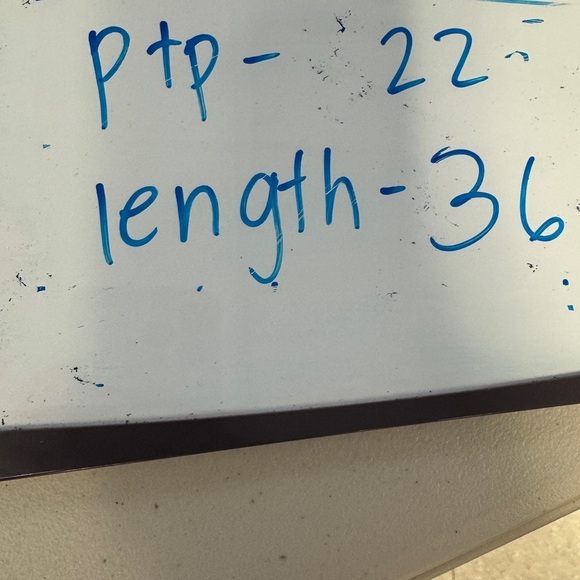 ptp- 22
length-36